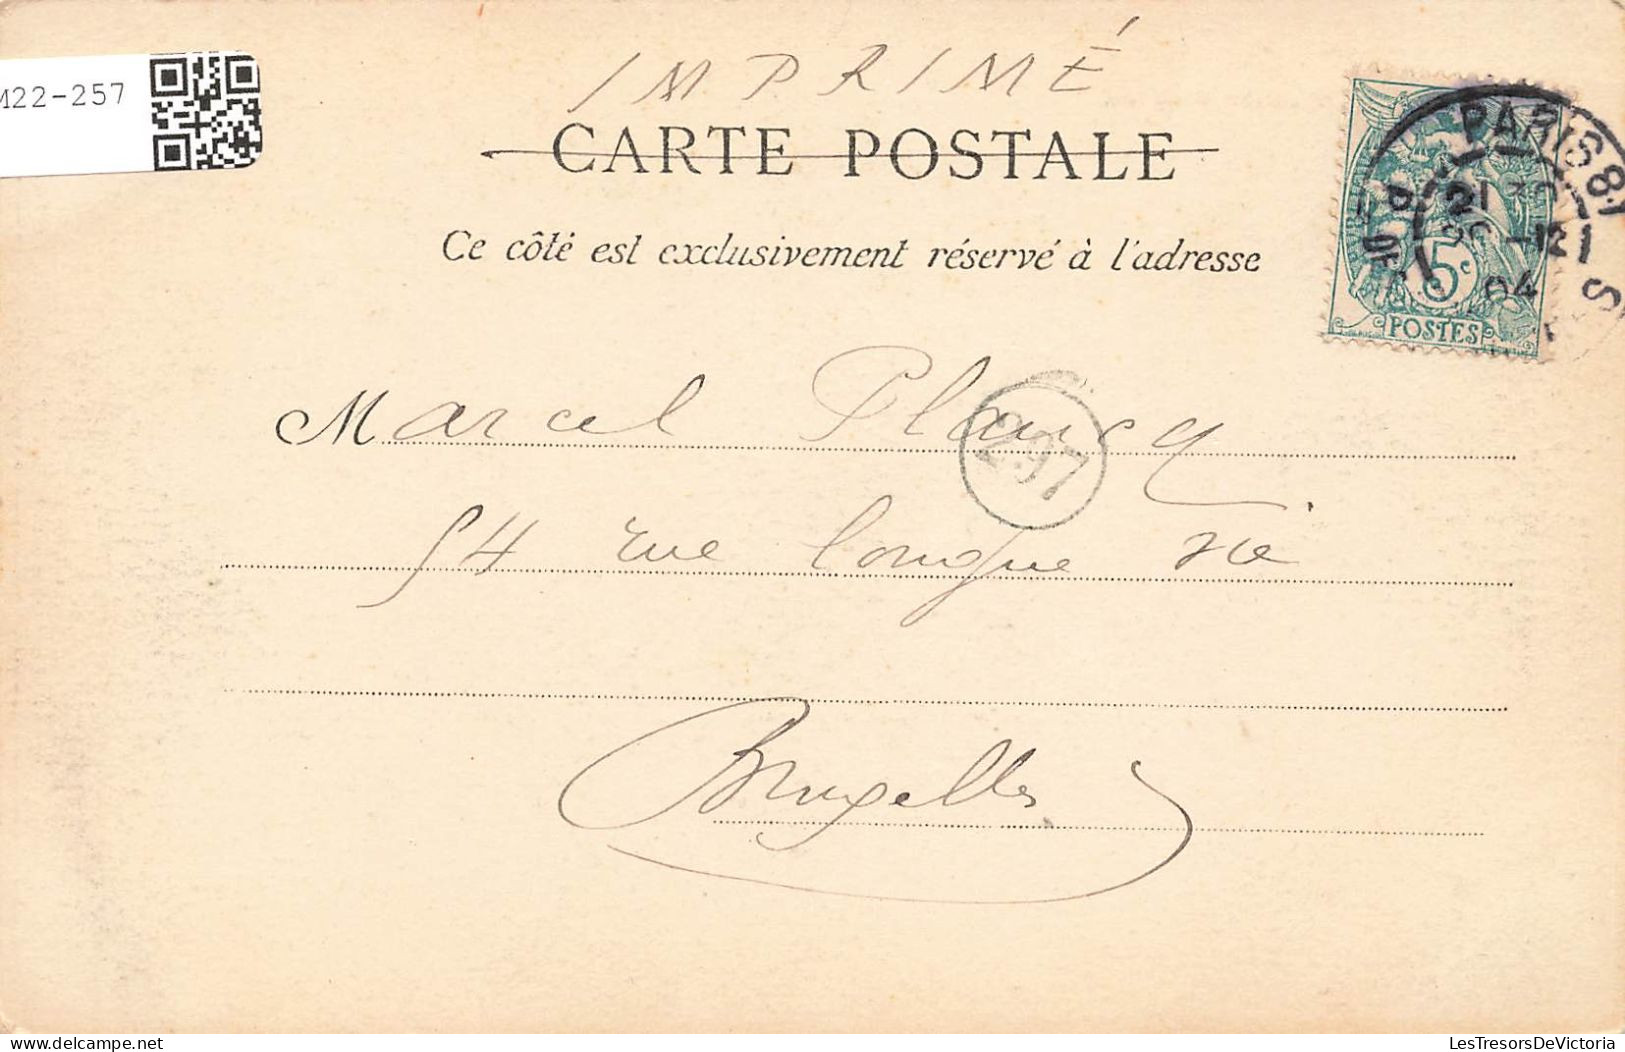 IMPRIMÉ
M22-257
CARTE POSTALE
Ce côté est exclusivement réservé à l'adresse
PARIS 81
21
20 -12
04
5c
POSTES
Marcel Plancq
297
54 rue longue vie
Bruxelles
LesTresorsDeVictoria